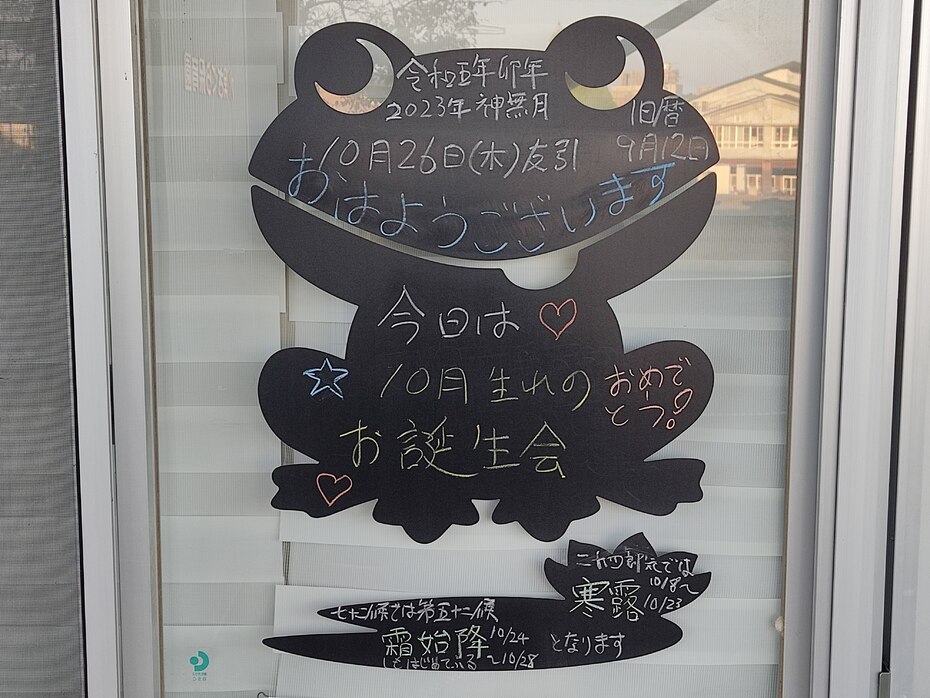 令和五年卯年
2023年神無月
旧暦
9月12日
10月26日(木)友引
おはようございます
今日は
10月生れの
お誕生会
おめで
とう!
二十四節気では
寒露 10/8〜
10/23
七十二候では第五十二候
霜始降 10/24
〜10/28
しもはじめてふる
となります